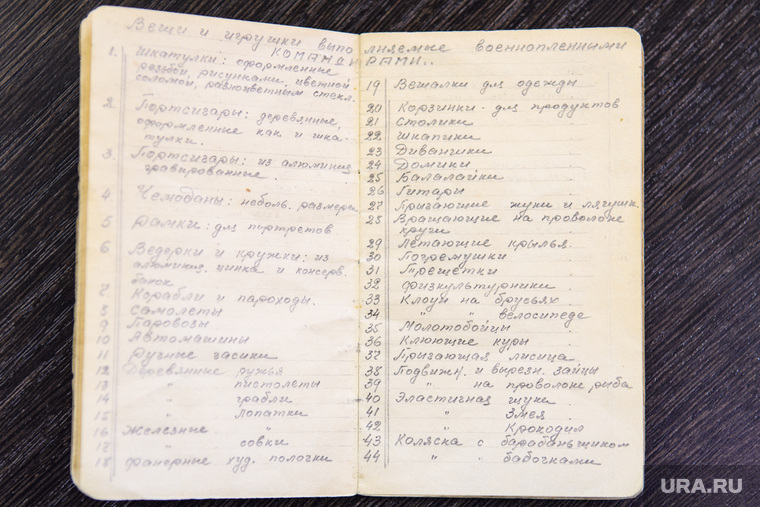 Вещи и игрушки выполняемые военнопленными
КОМАНДИРАМИ..
1. Шкатулки: оформленные
резьбой, рисунками, цветной
соломой, разноцветным стекл.
2. Портсигары: деревянные,
оформленные как и шка-
тулки.
3. Портсигары: из алюминия
гравированные.
4 Чемоданы: неболь. размеры
5 Рамки: для портретов
6 Ведерки и кружки: из
алюминия, цинка и консерв.
банок
7 Корабли и пароходы.
8 Самолеты
9 Паровозы
10 Автомашины
11 Ручные часики
12 Деревянные ружья
13 " пистолеты
14 " грабли
15 " лопатки
16 Железные "
17 " совки
18 Фанерные худ. полочки
19 Вешалки для одежды
20 Корзинки - для продуктов
21 Столики
22 Шкапики
23 Диванчики
24 Домики
25 Балалайки
26 Гитары
27 Прыгающие жуки и лягушк.
28 Вращающие на проволоке
круги
29 Летающие крылья.
30 Погремушки
31 Трещетки
32 Физкультурники
33 Клоун на брусьях
34 " " велосипеде
35 Молотобойцы
36 Клюющие куры
37 Прыгающая лисица
38 Подвижн. и вырезн. зайцы
39 " на проволоке рыба
40 Эластичная щука
41 " Змея
42 " Крокодил
43 Коляска с барабаньщиком
44 " " бабочками
URA.RU